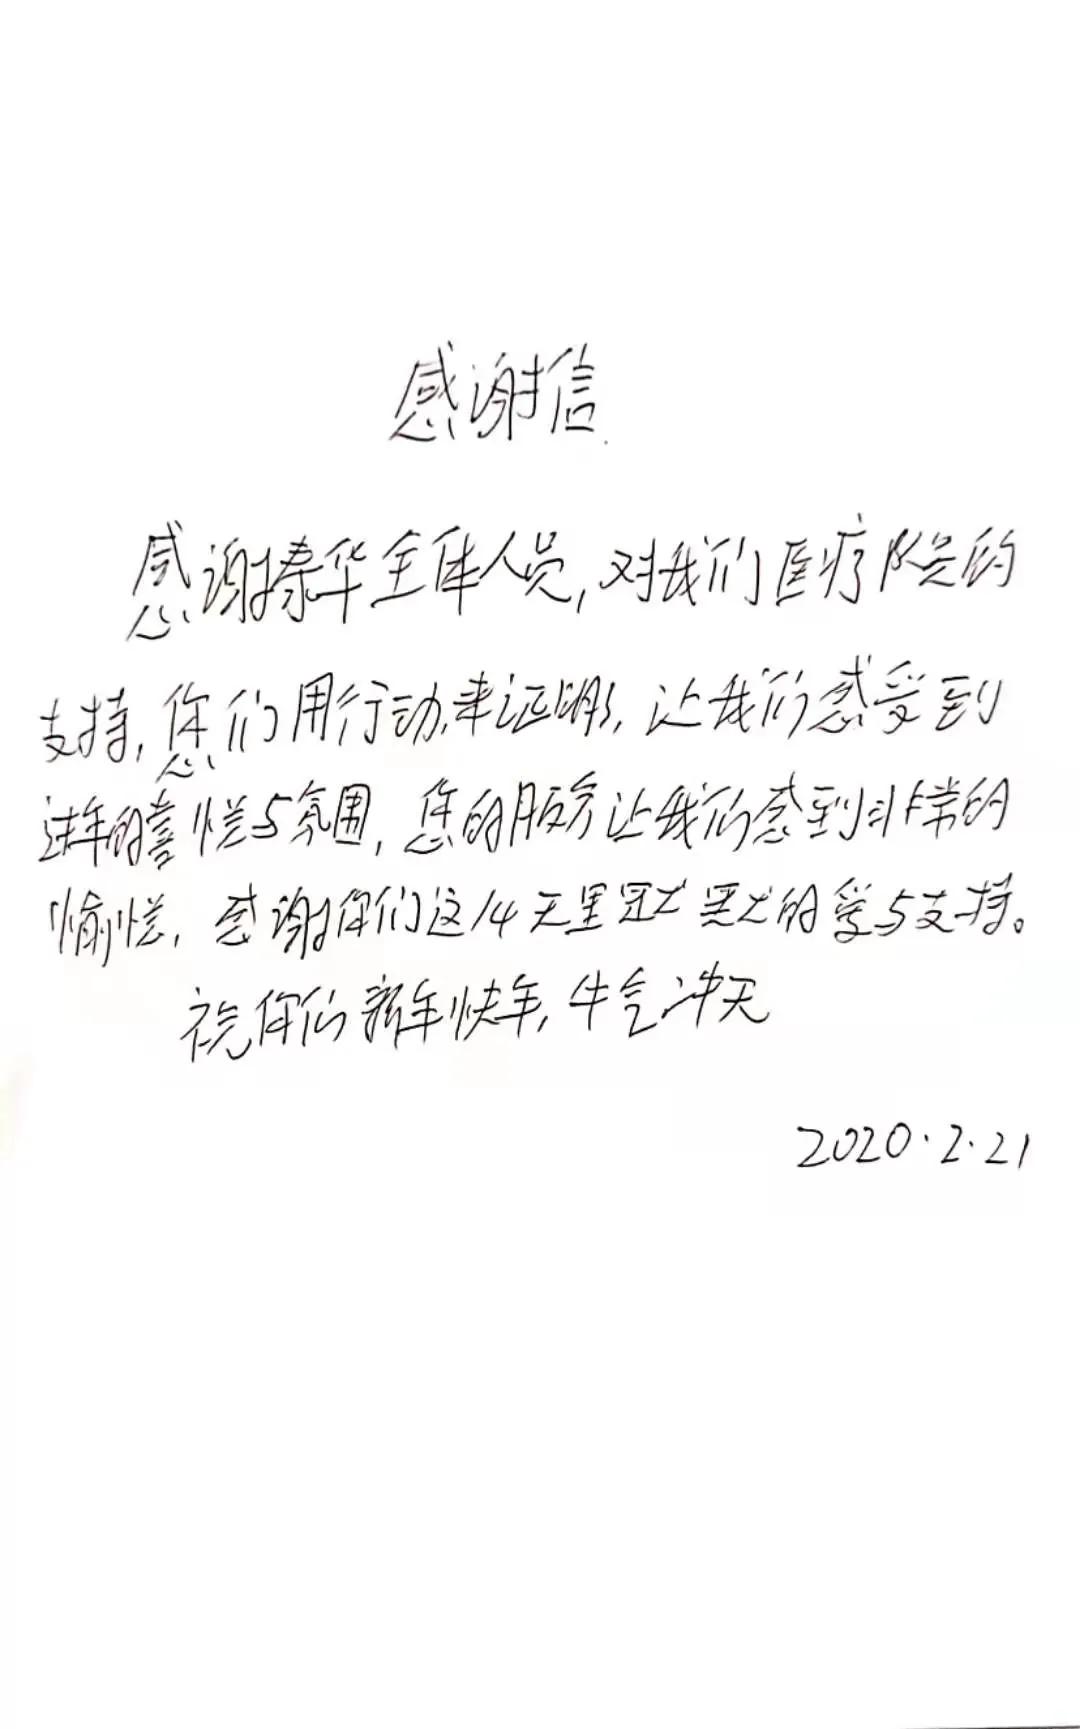 感谢信
感谢秦华全体人员，对我们医疗队员的
支持，您们用行动来证明，让我们感受到
过年的喜悦与氛围，您的服务让我们感到非常的
愉悦，感谢你们这14天里默默的爱与支持。
祝你们新年快年，牛气冲天
2020.2.21